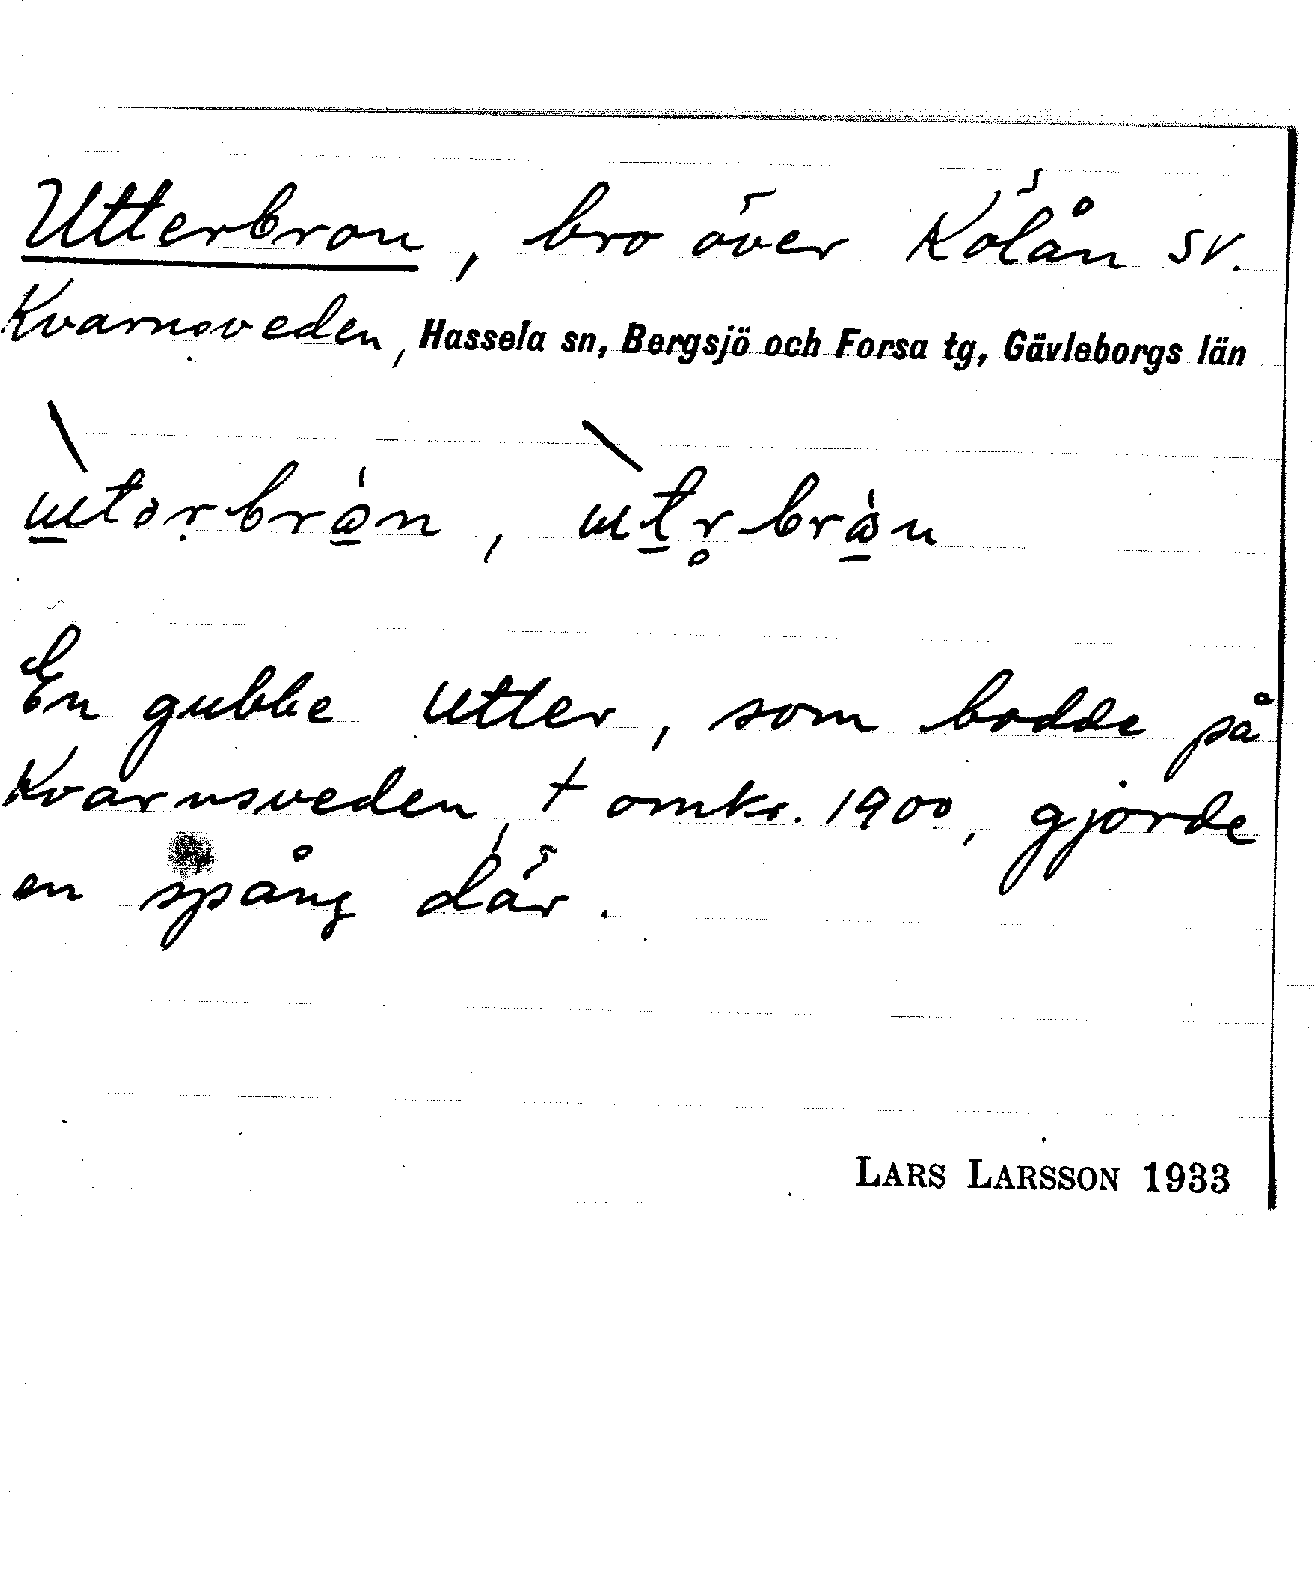 Utterbron, bro över Kölån sv.
Kvarnsveden, Hassela sn, Bergsjö och Forsa tg, Gävleborgs län
En gubbe Utter, som bodde på
Kvarnsveden, † omkr. 1900, gjorde
en spång där.
LARS LARSSON 1933